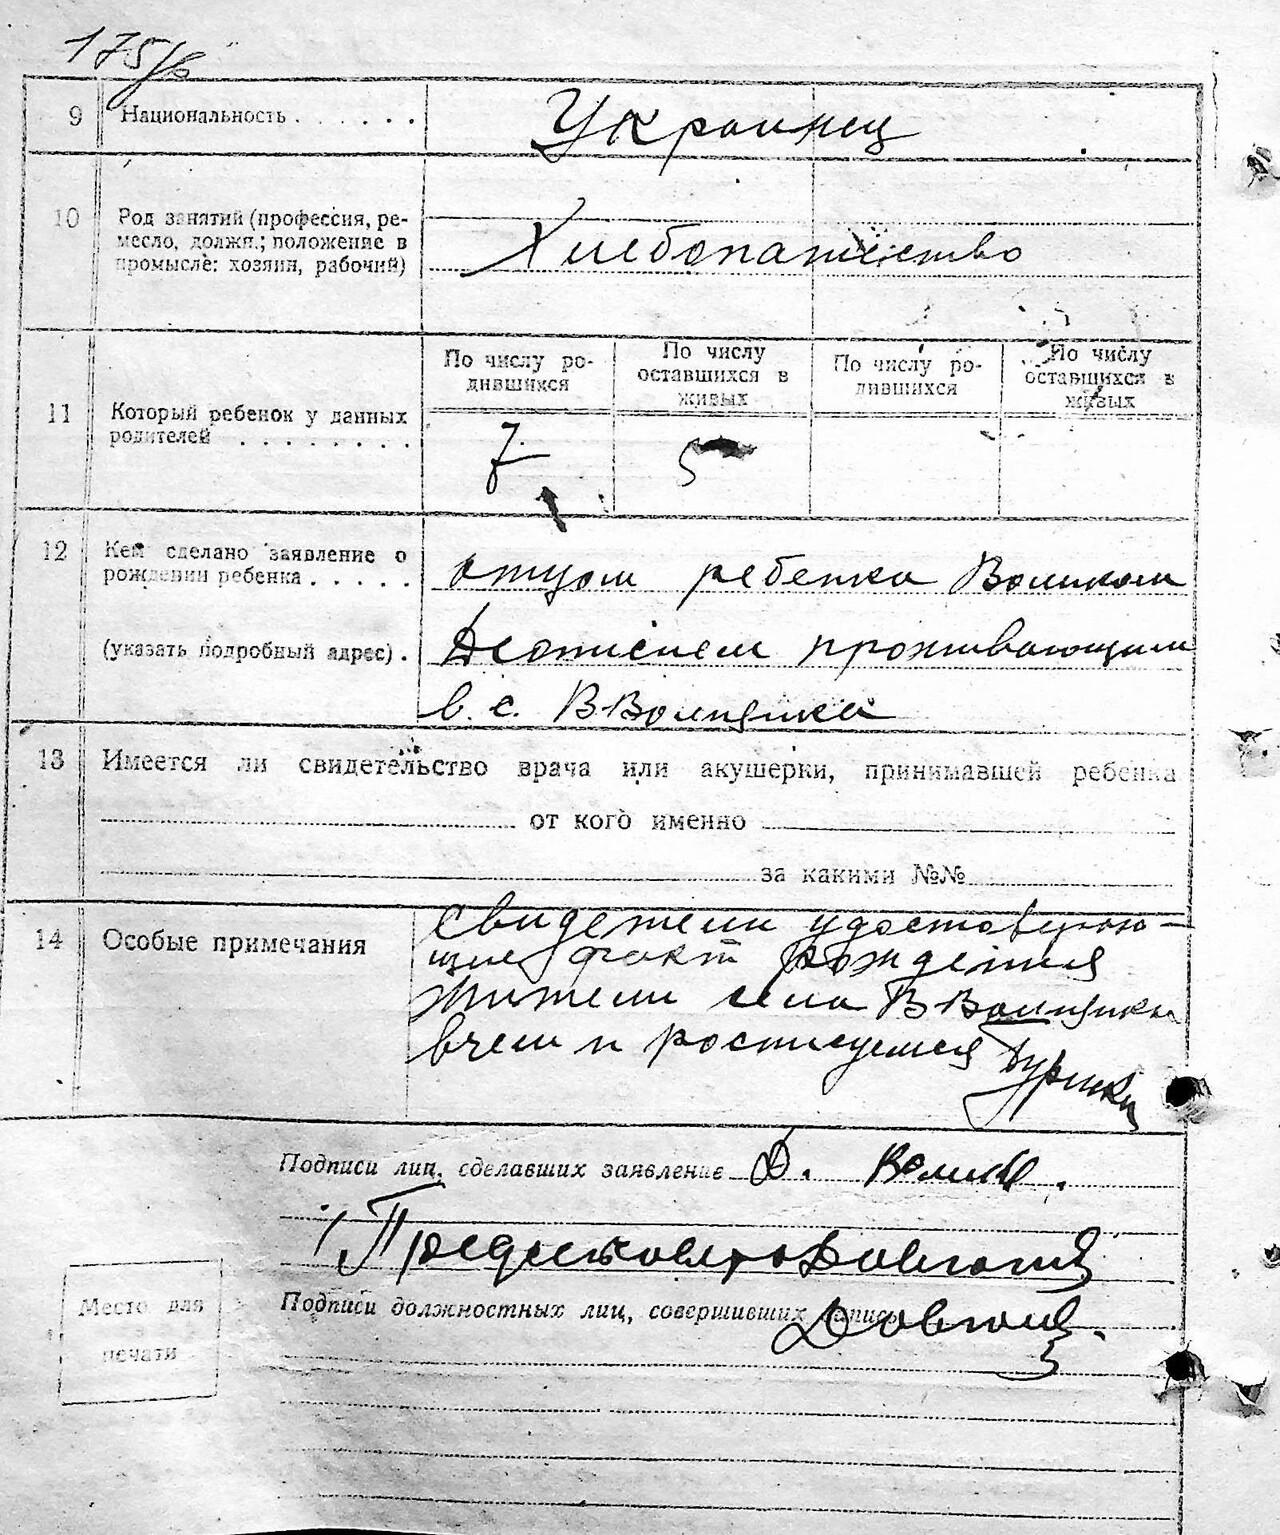 175/в
9 Национальность . . . . . . Украинец
10 Род занятий (профессия, ре-
месло, должн.; положение в
промысле: хозяин, рабочий) Хлебопашество
11 Который ребенок у данных
родителей . . . . . . . .
По числу ро-
дившихся
По числу
оставшихся в
живых
По числу ро-
дившихся
По числу
оставшихся в
живых
7 5
12 Кем сделано заявление о
рождении ребенка . . . . .
(указать подробный адрес) .
отцом ребенка Воликом
проживающим
в с. В-Волицика
13 Имеется ли свидетельство врача или акушерки, принимавшей ребенка
от кого именно
за какими №№
14 Особые примечания
Свидетели удостоверяю-
щие факт рождения
жители села В-Волицики
в чем и
Подписи лиц, сделавших заявление Д. Волик.
Подписи должностных лиц, совершивших запись
Место для
печати